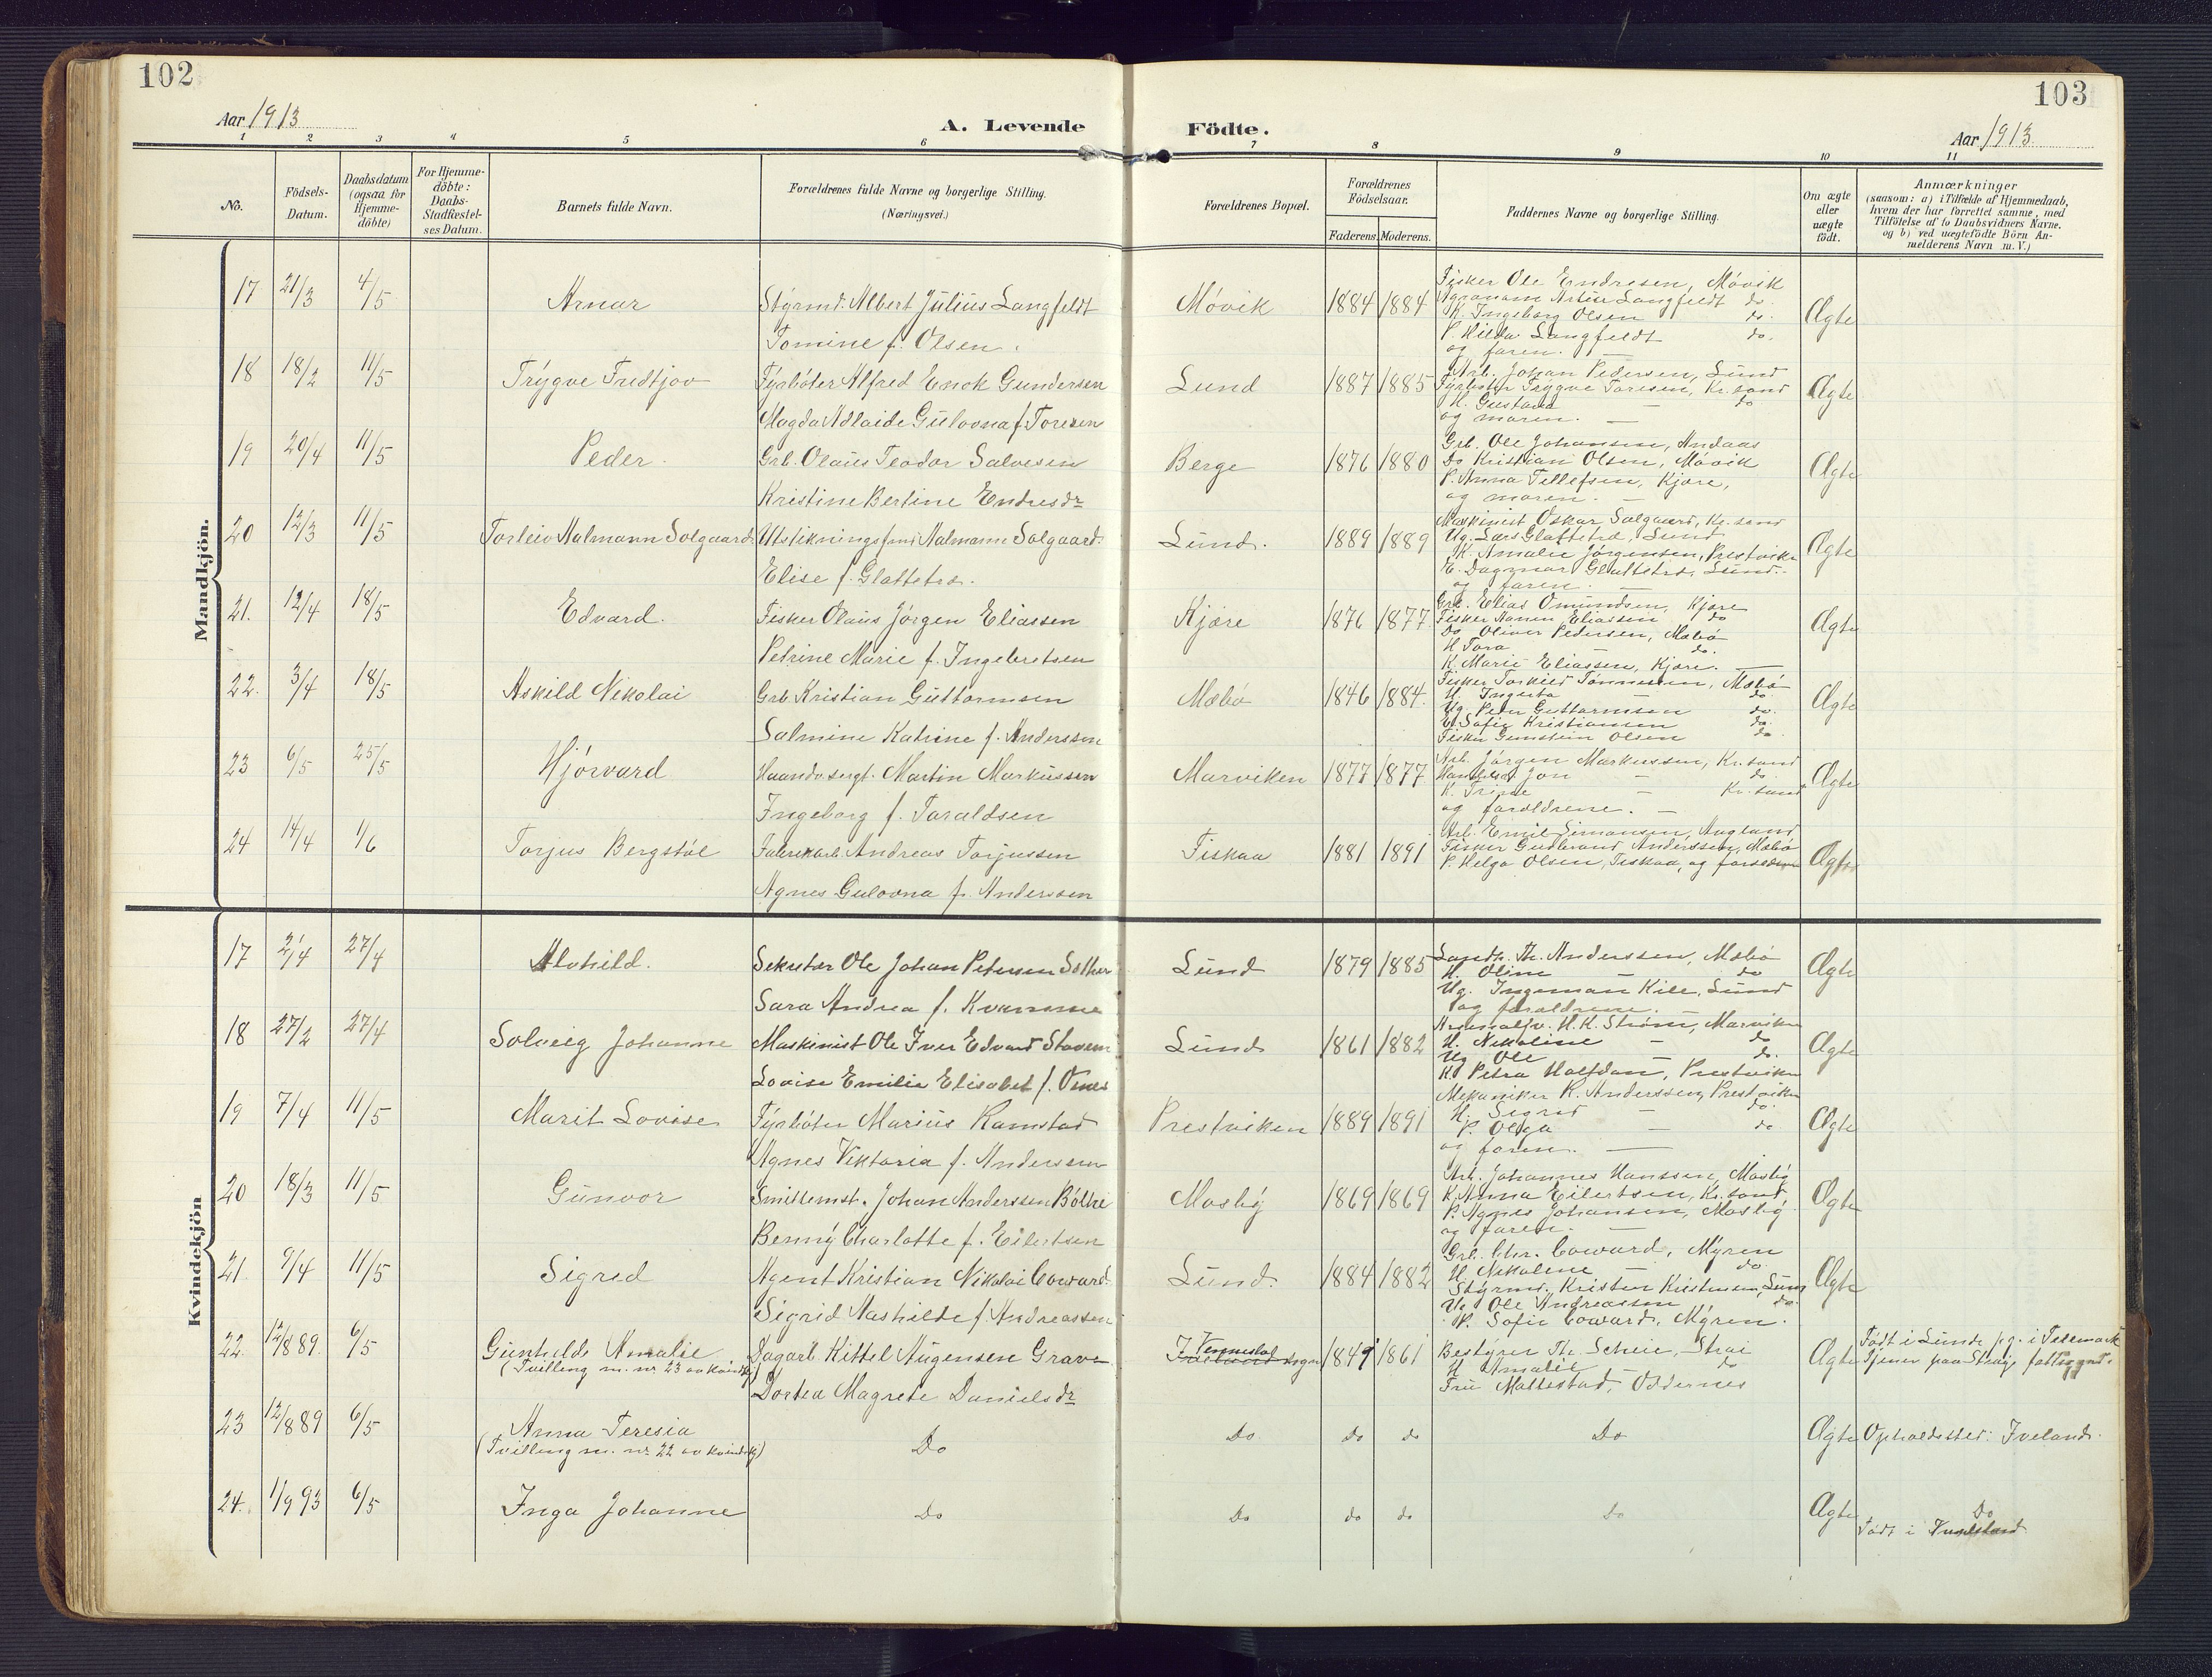 102
103
Aar 1913
A. Levende Födte.
Aar 1913
1 2 3 4 5 6 7 8 9 10 11
No.
Födsels-Datum.
Daabsdatum (ogsaa for Hjemme-döbte)
For Hjemme-döbte: Daabs-Stadfæstel-ses Datum.
Barnets fulde Navn.
Forældrenes fulde Navne og borgerlige Stilling. (Næringsvei.)
Forældrenes Bopæl.
Forældrenes Födselsaar.
Faderens. Moderens.
Faddernes Navne og borgerlige Stilling.
Om ægte eller uægte födt.
Anmærkninger (saasom: a) i Tilfælde af Hjemmedaab, hvem der har forrettet samme, med Tilföielse af to Daabsvidners Navne. og b) ved uægtefödte Börn An-melderens Navn m. V.)
Mandkjön.
17 21/3 4/5 Arnar Styrmd. Albert Julius Langfeldt Møvik 1884 1884 Fisker Ole Endresen, Møvik Ægte
Tomine f. Olsen.
Agronom Artur Langfeldt do.
K. Ingeborg Olsen do.
P. Hilda Langfeldt do.
og faren.
18 18/2 11/5 Trygve Fredtjov Fyrbøter Alfred Enok Gundersen Lund 1887 1885 Arb. Johan Pedersen, Lund Ægte
Magda Adlaide Gulovna f. Toresen
Fyrbøter Trygve Toresen, Kr.sand
H. Gustava — do
og moren.
19 20/4 11/5 Peder. Grb. Olaus Teodor Salvesen Berge 1876 1880 Grb. Ole Johansen, Andaas Ægte
Kristine Bertine Endresdr
Do Kristian Olsen, Møvik
P. Anna Tellefsen, Kjære,
og moren. —
20 12/3 11/5 Torleiv Malmann Solgaard Utstikningsfmd Malmann Solgaard. Lund. 1889 1889 Maskinist Oskar Solgaard, Kr.sand Ægte
Elise f. Glattetre.
Ug. Lars Glattetre, Lund
K. Amalie Jørgensen, Prestviken
E. Dagmar Glattetre, Lund.
og faren.
21. 12/4 18/5 Edvard. Fisker Olaus Jørgen Eliassen Kjære 1876 1877 Grb. Elias Omundsen, Kjære Ægte
Petrine Marie f. Ingebretsen
Fisker Hanen Eliassen do
do Oliver Pedersen, Mæbø
H Tora — do.
K. Marie Eliassen, Kjære. —
22. 3/4 18/5 Askild Nikolai Grb. Kristian Guttormsen Mæbø 1846 1884. Fisker Torkild Tønnesen, Mæbø Ægte
Salmine Katrine f. Anderssen
H. Ingerta — do
Ug. Peder Guttormsen do.
E. Sofie Kristiansen do.
Fisker Gunstein Olsen do
23 6/5 25/5 Hjørvard Haandv.sergt. Martin Markussen Marviken 1877 1877 Arb. Jørgen Markussen, Kr.sand Ægte
Ingeborg f. Taraldsen
Jon — do
K. Trine — Kr.sand
og forældrene. —
24 14/4 1/6 Torjus Bergstøl Fabrikarb. Andreas Torjussen Fiskaa 1881 1891 Arb. Emil Simonsen, Augland Ægte
Agnes Gulovna f. Anderssen
Fisker Gudbrand Anderssen, Mæbø
P. Helga Olsen, Fiskaa, og forældrene
Kvindekjön
17 2/4 27/4 Alvhild. Sekretær Ole Johan Petersen Sæther Lund 1879 1885 Landh. Th. Anderssen, Mæbø Ægte
Sara Andrea f. Kvamme
H. Oline — do
Ug. Ingeman Kile, Lund
og forældrene. —
18 27/2 27/4 Solveig Johanne Maskinist Ole Iver Edvard Stavem Lund 1861 1882 H. K. Strøm, Marviken Ægte
Lovise Emilie Elisabet f. Omes
H. Nikoline — do
Ug Ole — do.
K. Petra Halfdan, Prestviken
19 7/4 11/5 Marit Lovise Fyrbøter Marius Ramstad Prestviken 1889 1891 Mekaniker R. Anderssen, Prestviken Ægte
Agnes Viktoria f. Anderssen
H. Sigrid — do.
P. Olga — do
og faren. —
20 18/3 11/5 Gunvor Smittemst. Johan Anderssen Bølke Mosby 1869 1869 Arb. Johannes Hanssen, Mosby Ægte
Benny Charlotte f. Eilertsen
K. Anna Eilertsen, Kr.sand
P. Agnes Johansen, Mosby
og faren. —
21. 9/4 11/5 Sigrid Agent Kristian Nikolai Coward. Lund. 1884 1882 Grb. Chr. Coward, Myren Ægte
Sigrid Mathilde f. Andreassen
H. Nikoline — do.
Styrmd. Kristen Kristensen, Lund
Ug. Ole Andreassen do.
P. Sofie Coward, Myren.
22. 12/8 89. 6/5 Gunhilde Amalie Dagarb. Kittel Augensen Graver Vennesla sogn 1849 1861 Bestyrer Th. Scheie, Strai Ægte Født i Lunde pg. i Telemark
(Tvilling m. nr. 23 av kvindekj) Dortea Magrete Danielsdr
H Amalie — do
Tjener paa Straje fattiggrd.
Fru Mollestad, Oddernes
23 12/8 89 6/5 Anna Teresia Do Do do do Do Ægte Opholdssted: Iveland.
(Tvilling m. nr. 22 av kvindekj)
24. 1/9 93 6/5 Inga Johanne do Do do do do Ægte Do
Født i